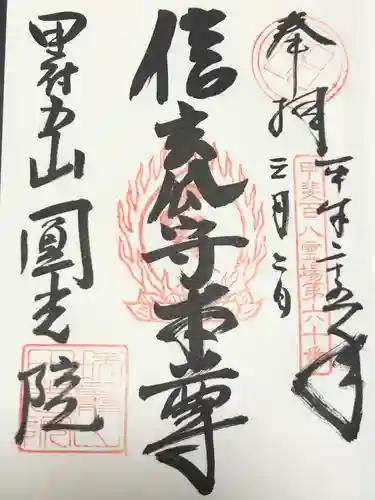 奉拝
平成二十五年
三月二日
甲斐百八霊場第六十番
信玄公守本尊
甲府
山
圓光院